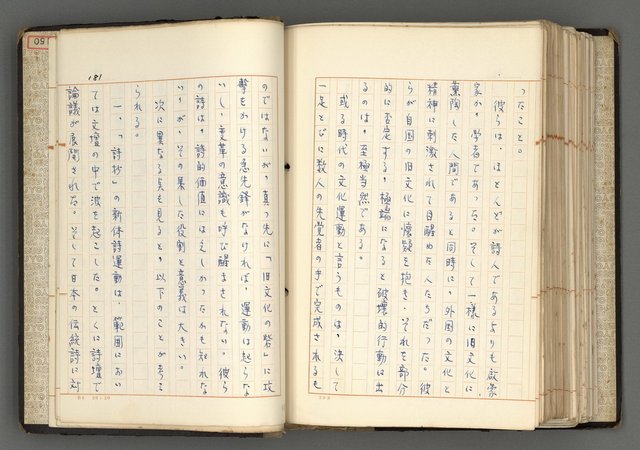 ったこと。
彼らは、ほとんどが詩人であるよりも啟蒙
家か、学者であった。そして一様に旧文化に
薫陶した人間であると同時に、外国の文化と
精神に刺激されて目醒めた人たちだった。彼
らが自国の旧文化に懐疑を抱き、それを部分
的に否定する、極端になると破壊的行動に出
るのは、至極当然である。
或る時代の文化運動と言うものは、決して
一足とびに数人の先覚者の手で完成されるも
181
のではないが、真っ先に「旧文化の砦」に攻
撃をかける急先鋒がなければ、運動は起らな
いし、変革の意識も呼び醒まされない。彼ら
の詩は、詩的価値には乏しかったかも知れな
いが、その果した役割と意義は大きい。
次に異なる点を見ると、以下のことが考え
られる。
一、「詩抄」の新体詩運動は、範囲におい
ては文壇の中で波を起こした。とくに詩壇で
論議が展開された。そして日本の伝統詩に対